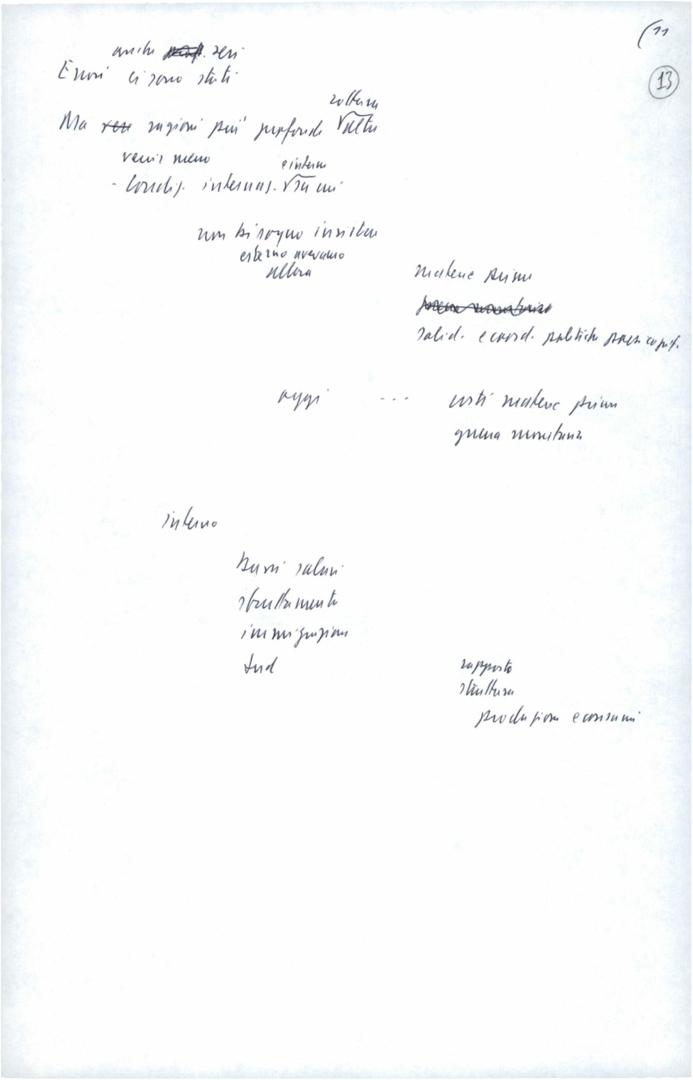 (11
13
anche seri
Errori ci sono stati
rottura
Ma ragioni più profonde
venir meno e interne
- condiz. internaz. su cui
non bisogno insistere
esterno avevamo
allora
materie prime
solid. e coord. politiche paesi capit.
oggi --- costi materie prime
guerra monetaria
interno
bassi salari
sfruttamento
immigrazione
Sud
rapporto
struttura
produzione e consumi